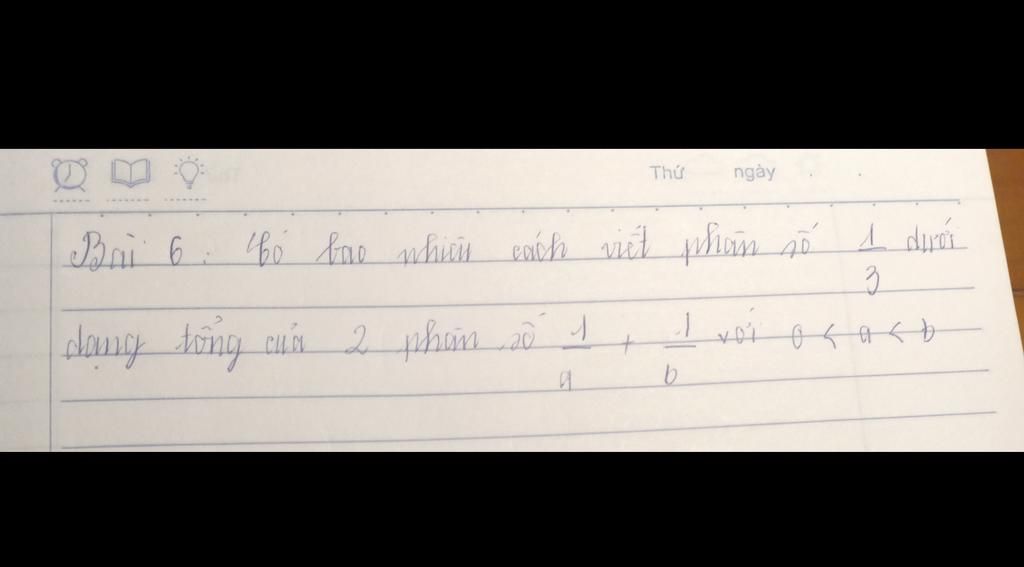 Thứ ngày
Bài 6: Có bao nhiêu cách viết phân số 1/3 dưới
dạng tổng của 2 phân số 1/a + 1/b với 0 < a < b